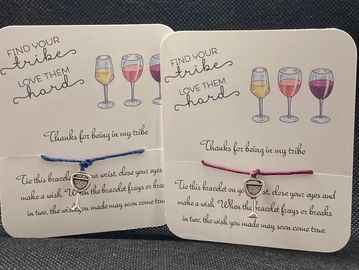 FIND YOUR
tribe
LOVE THEM
hard
Thanks for being in my tribe
Tie this bracelet your wrist, close your eyes
make a wish. W the bracelet frays or breaks
in two, the wish you made may soon come
FIND YOUR
tribe
LOVE THEM
hard
Thanks for being in my tribe
Tie this bracelet on close your eyes and
make a wish. When the bracelet frays or breaks
in two, the wish you made may soon come true